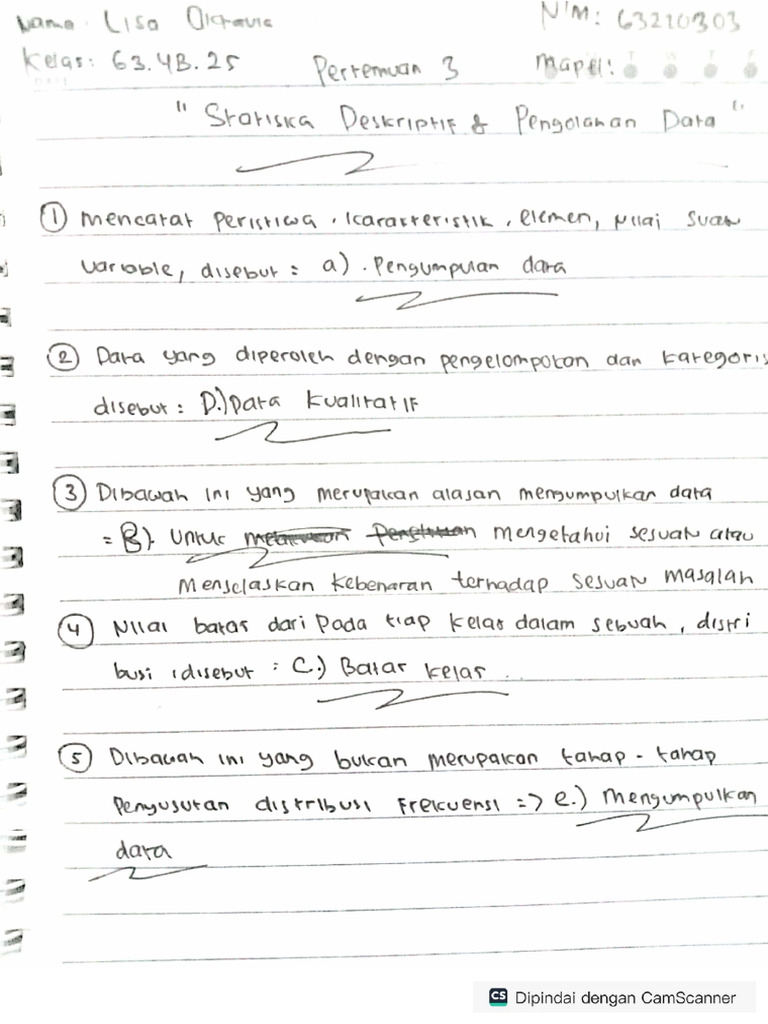 Nama : Lisa Oktavia NIM : 63210303
Kelas : 63.4B.25 Pertemuan 3 Mapel :
" Statiska Deskriptif & Pengolahan Data "
① Mencatat Peristiwa, karakteristik, elemen, Nilai Suatu
Variable, disebut : a). Pengumpulan data
② Data yang diperoleh dengan pengelompokan dan kategoris
disebut : D.) Data kualitatif
③ Dibawah ini yang merupakan alasan mengumpulkan data
= B). Untuk mengetahui sesuatu atau
Menjelaskan kebenaran terhadap sesuatu masalah
④ Nilai batas dari Pada tiap kelas dalam sebuah, distri
busi, disebut : C.) Batas kelas.
⑤ Dibawah ini yang bukan merupakan tahap - tahap
Penyusutan distribusi Frekuensi => e.) Mengumpulkan
data
CS Dipindai dengan CamScanner